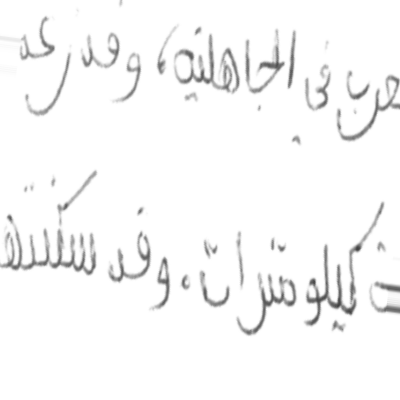 عرب في الجاهلية، وقد زعد
ة كيلومترات. وقد سكنته